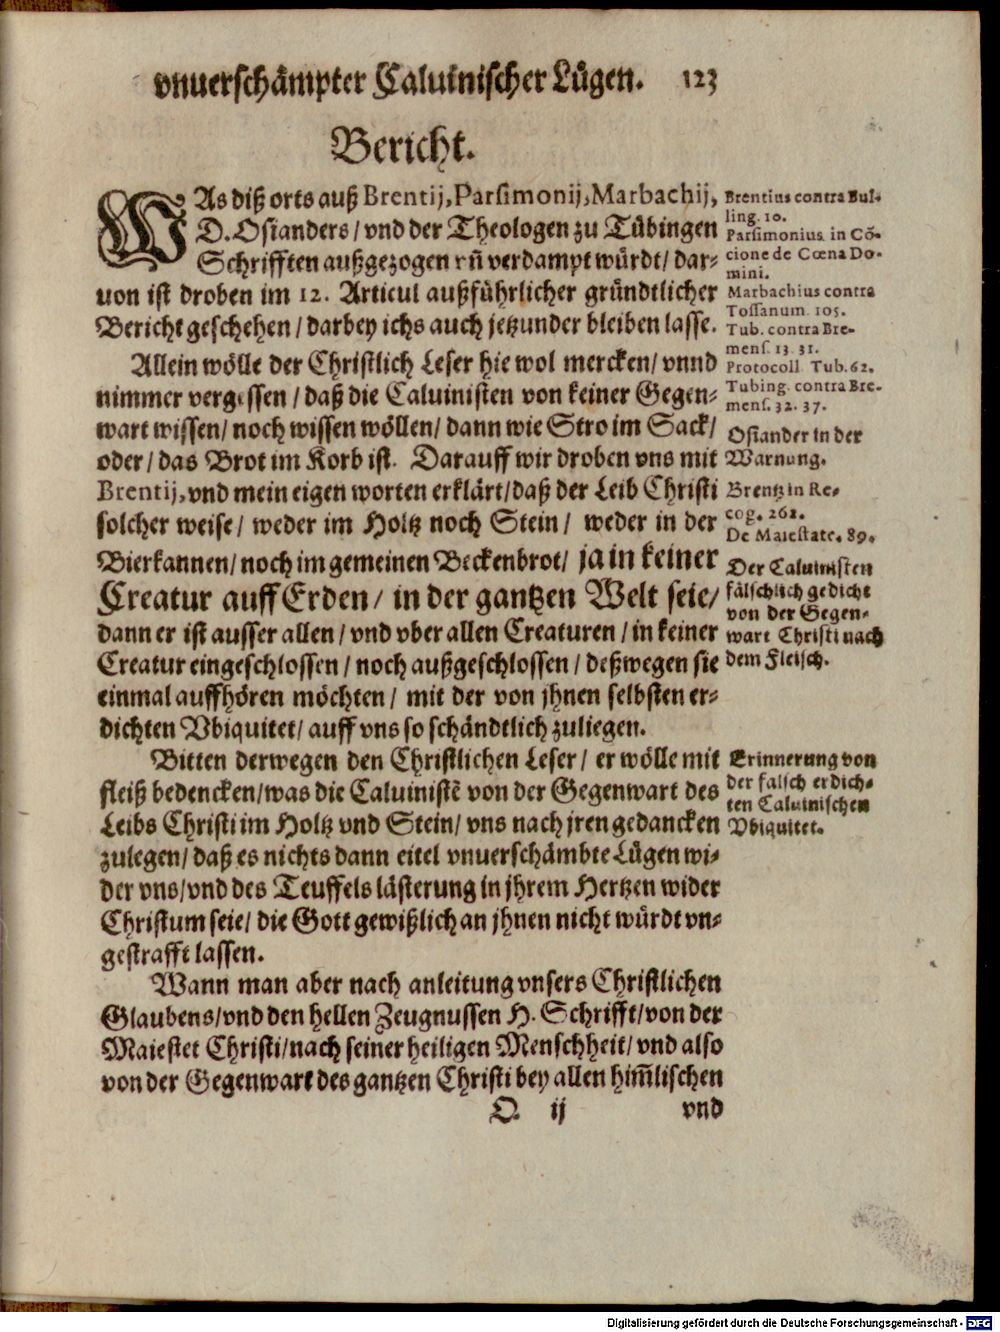 vnuerschämpter Caluinischer Lügen. 123
Bericht.
WAs diß orts auß Brentij, Parsimonij, Marbachij,
D. Osianders/ vnd der Theologen zu Tübingen
Schrifften außgezogen vñ verdampt würdt/ dar-
uon ist droben im 12. Articul außführlicher gründtlicher
Bericht geschehen/ darbey ichs auch jetzunder bleiben lasse.
Allein wölle der Christlich Leser hie wol mercken/ vnnd
nimmer vergessen/ daß die Caluinisten von keiner Gegen-
wart wissen/ noch wissen wöllen/ dann wie Stro im Sack/
oder/ das Brot im Korb ist. Darauff wir droben vns mit
Brentij, vnd mein eigen worten erklärt/ daß der Leib Christi
solcher weise/ weder im Holtz noch Stein/ weder in der
Bierkannen/ noch im gemeinen Beckenbrot/ ja in keiner
Creatur auff Erden/ in der gantzen Welt seie/
dann er ist ausser allen/ vnd vber allen Creaturen/ in keiner
Creatur eingeschlossen/ noch außgeschlossen/ deßwegen sie
einmal auffhören möchten/ mit der von jhnen selbsten er-
dichten Vbiquitet/ auff vns so schändtlich zuliegen.
Bitten derwegen den Christlichen Leser/ er wölle mit
fleiß bedencken/ was die Caluinistẽ von der Gegenwart des
Leibs Christi im Holtz vnd Stein/ vns nach jren gedancken
zulegen/ daß es nichts dann eitel vnuerschämbte Lügen wi-
der vns/ vnd des Teuffels lästerung in jhrem Hertzen wider
Christum seie/ die Gott gewißlich an jhnen nicht würdt vn-
gestrafft lassen.
Wann man aber nach anleitung vnsers Christlichen
Glaubens/ vnd den hellen Zeugnussen H. Schrifft/ von der
Maiestet Christi/ nach seiner heiligen Menschheit/ vnd also
von der Gegenwart des gantzen Christi bey allen him̃lischen
Q ij vnd
Brentius contra Bul-
ling. 10.
Parsimonius in Cõ-
cione de Cœna Do-
mini.
Marbachius contra
Tossanum. 105.
Tub. contra Bre-
mens. 13. 31.
Protocoll. Tub. 62.
Tubing. contra Bre-
mens. 32. 37.
Osiander in der
Warnung.
Brentz in Re-
cog. 262.
De Maiestate. 89.
Der Caluinisten
fälschlich gedicht
von der Gegen-
wart Christi nach
dem Fleisch.
Erinnerung von
der falsch erdich-
ten Caluinischen
Vbiquitet.
Digitalisierung gefördert durch die Deutsche Forschungsgemeinschaft - DFG